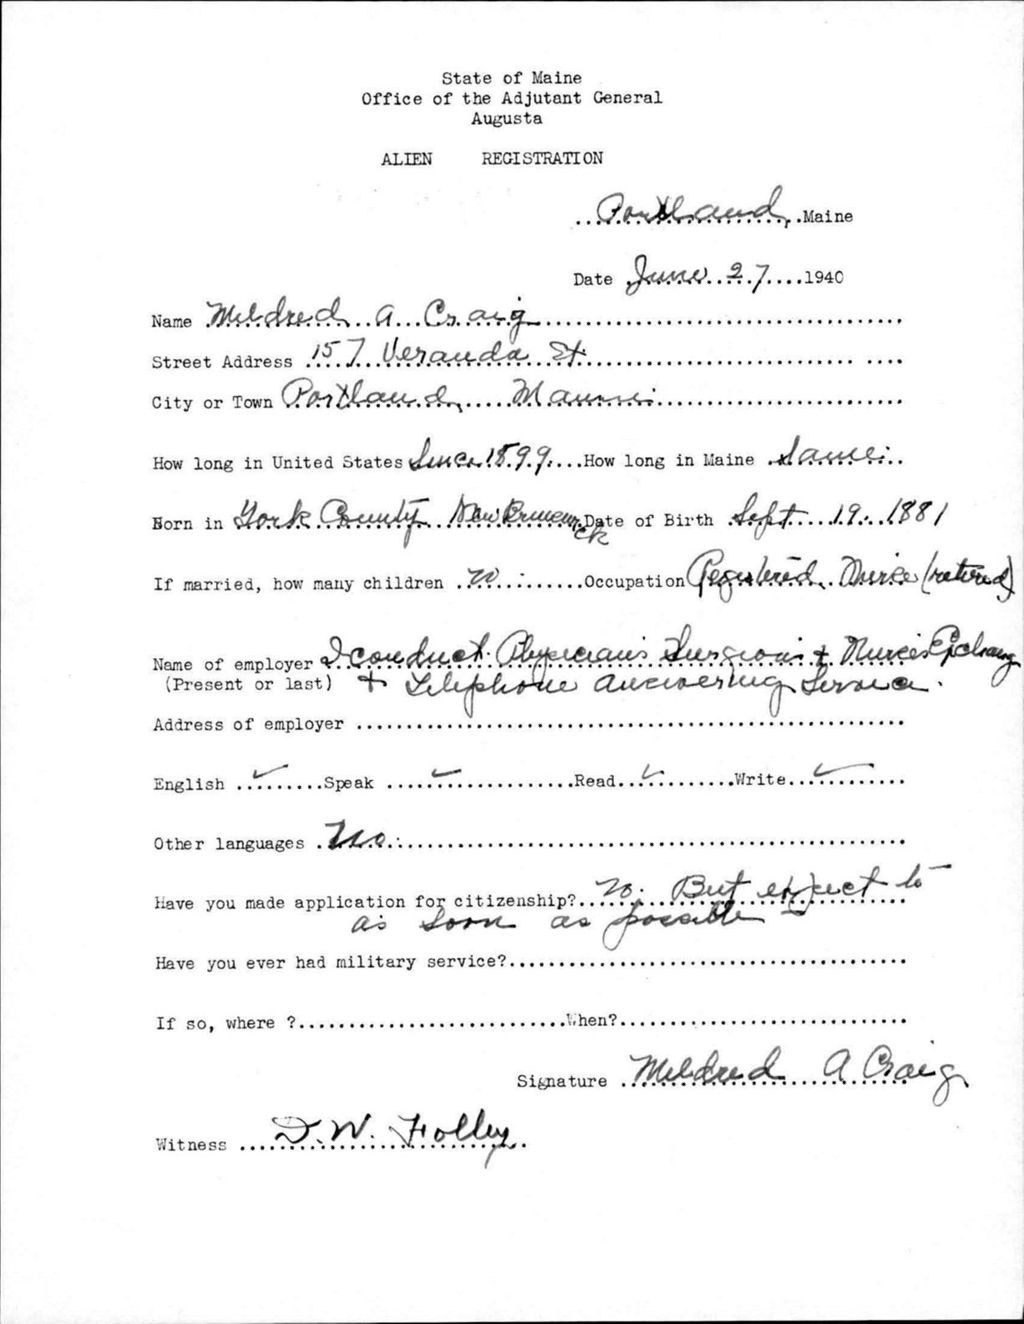 State of Maine
Office of the Adjutant General
Augusta
ALIEN REGISTRATION
Portland, Maine
Date June 27 1940
Name Mildred A Craig
Street Address 157 Veranda St
City or Town Portland, Maine
How long in United States Since 1899 How long in Maine Same
Born in York County New Brunswick Date of Birth Sept 19 1881
If married, how many children no Occupation Registered Nurse (retired)
Name of employer I conduct Physicians Surgeons + Nurses Exchange
(Present or last) + Telephone Answering Service.
Address of employer
English ✓ Speak ✓ Read ✓ Write ✓
Other languages No.
Have you made application for citizenship? No. But expect to
as soon as possible
Have you ever had military service?
If so, where ? When?
Signature Mildred A Craig
Witness D. W. Holley